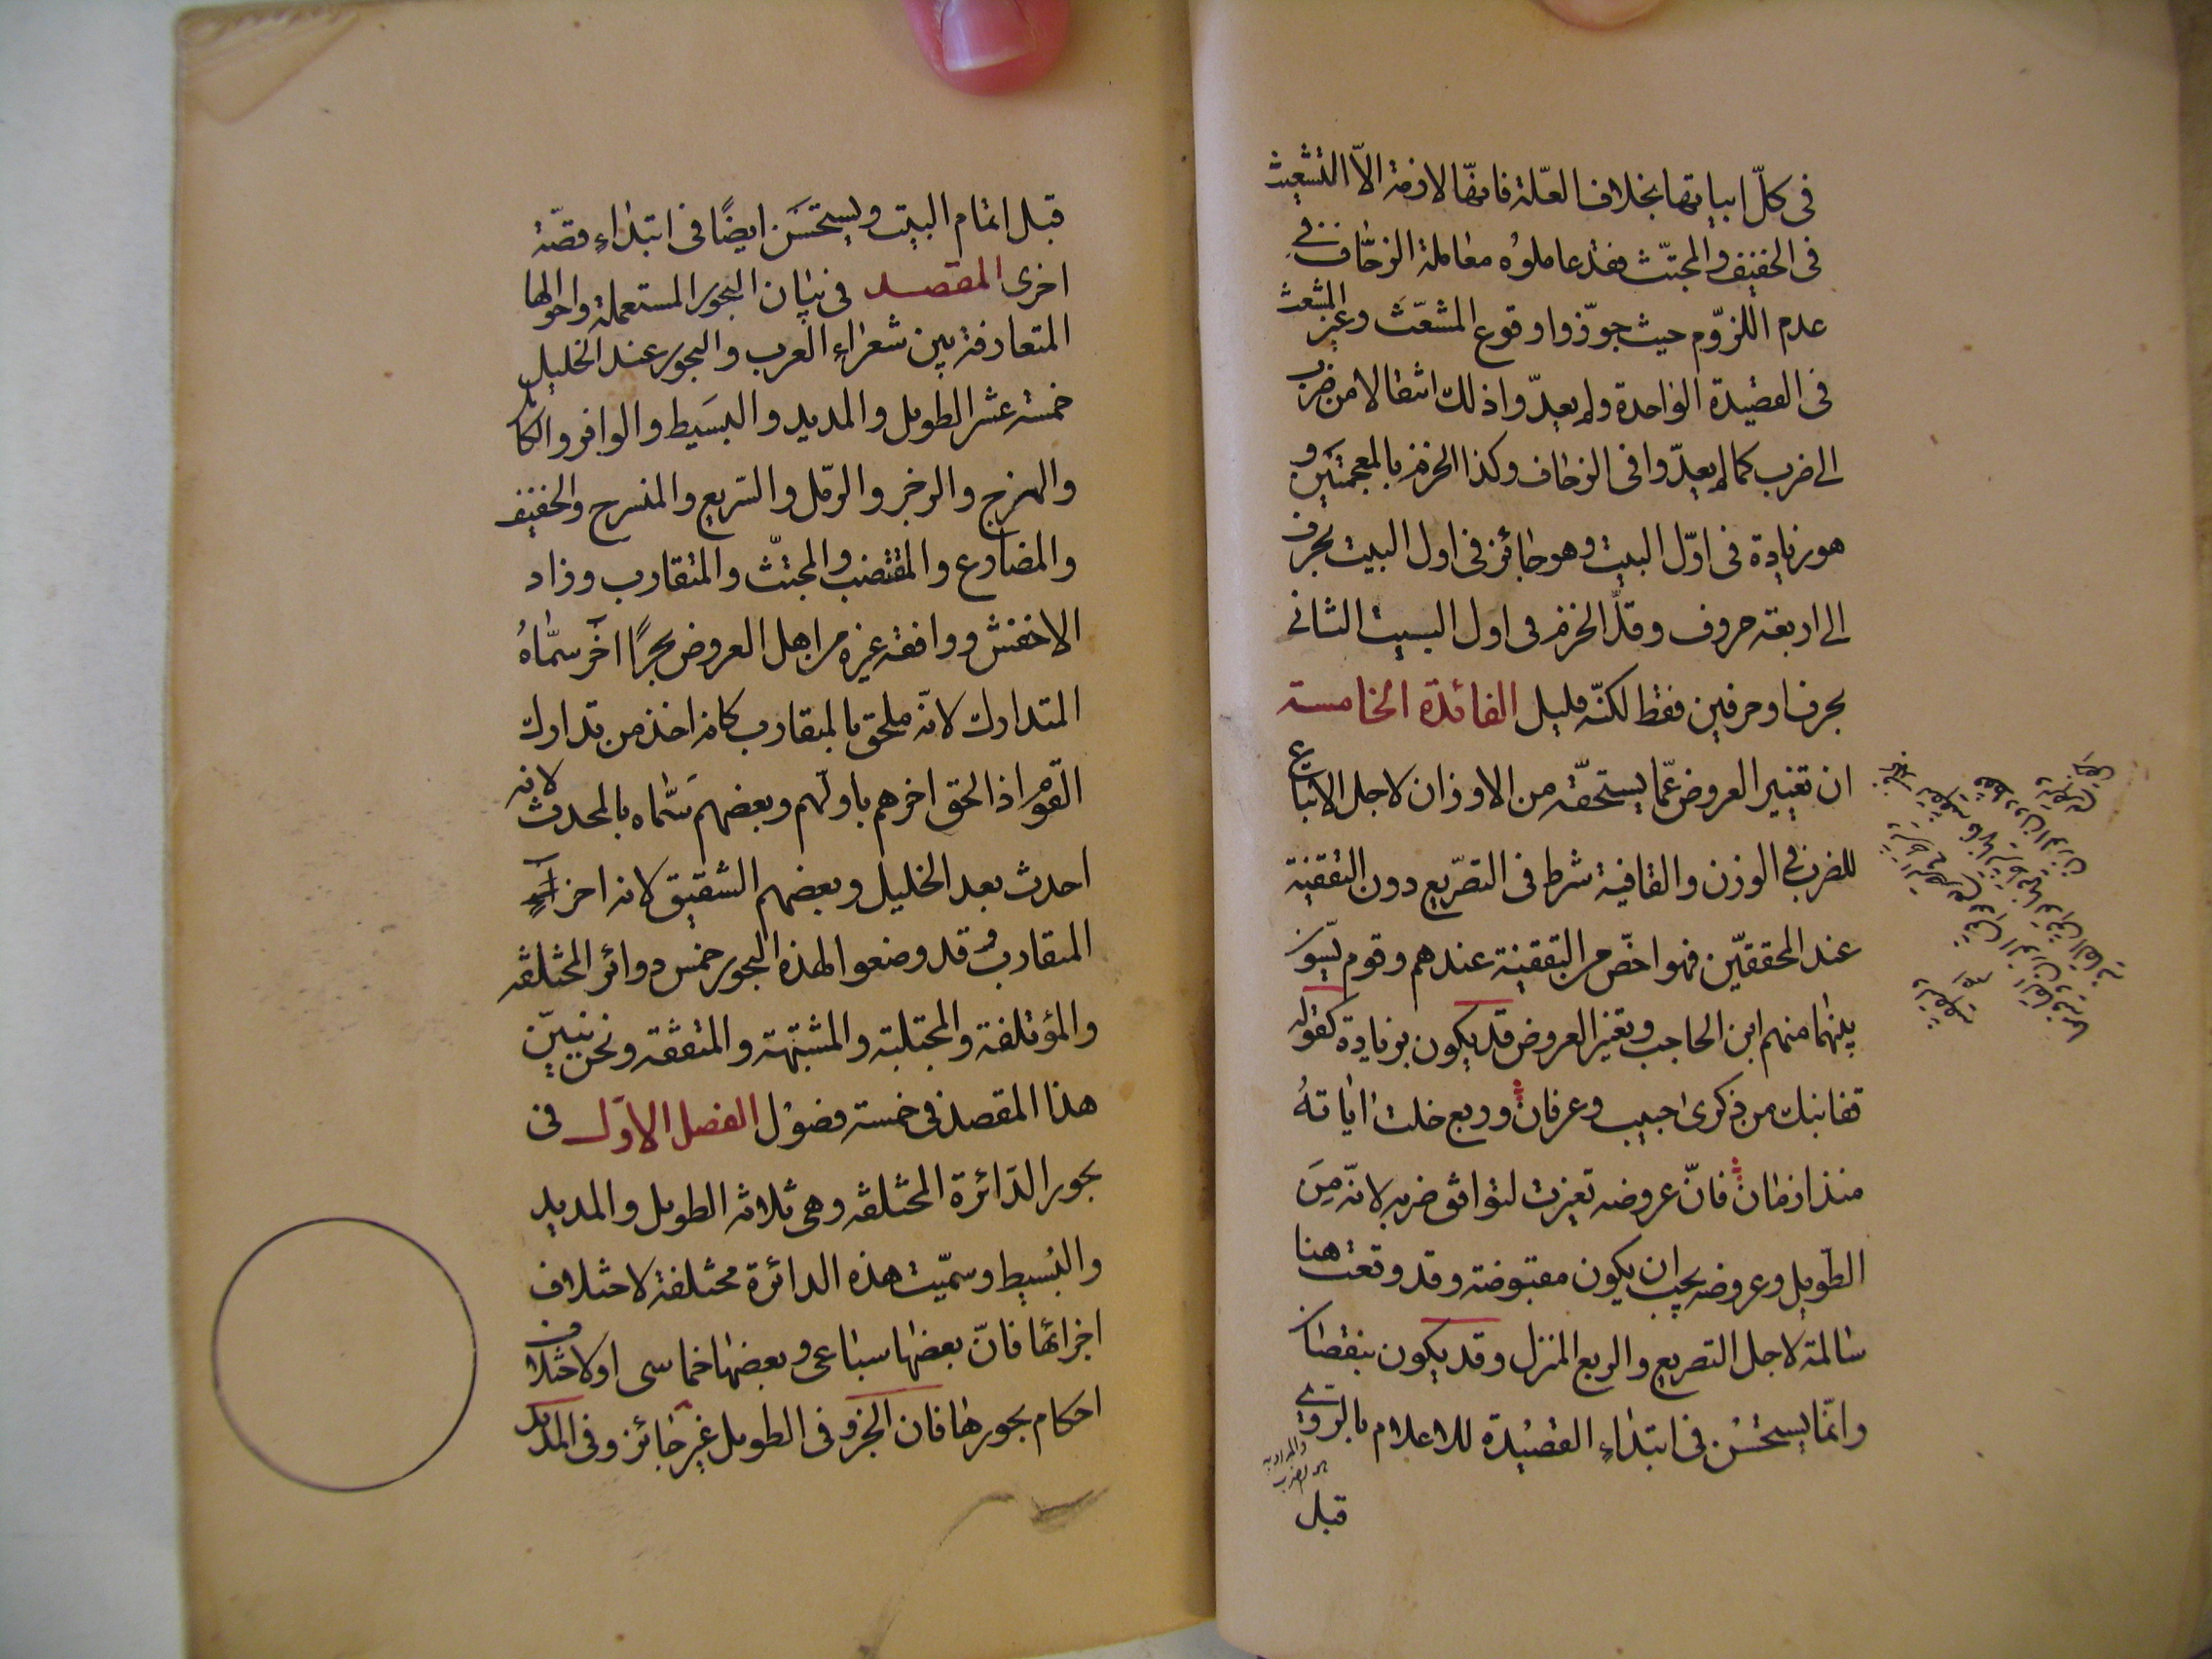 فى كلّ ابياتها بخلاف العلّة فانها لازمة الاّ التشعيث
فى الخفيف والمجتثّ فقد عاملوه معاملة الزحاف فى
عدم اللزوم حيث جوّزوا وقوع المشعّث وغير المشعث
فى القصيدة الواحدة ولم يعدّوا ذلك انتقالا من ضرب
الى ضرب كما لم يعدّوا فى الزحاف وكذا الخزم بالمعجمتين و
هو زيادة فى اوّل البيت وهو جائز فى اول البيت بحرف
الى اربعة حروف وقلّ الخزم فى اول البيت الثانى
بحرف او حرفين فقط لكنّه قليل الفائدة الخامسة
ان تغيير العروض عمّا يستحقّه من الاوزان لاجل الاتباع
للضرب فى الوزن والقافية شرط فى التصريع دون التقفية
عند المحققين فهو اخصّ من التقفية عندهم وقوم يسّوون
بينهما منهم ابن الحاجب وتغير العروض قد يكون بزيادة كقوله
قفا نبك من ذكرى حبيب وعرفان وربع خلت اياته
منذ ازمان فانّ عروضه تغيرت لتوافق ضربه لانّه من
الطويل وعروضه يجب ان يكون مقبوضة وقد وقعت هنا
سالمة لاجل التصريع والربع المنزل وقد يكون بنقصان
وانّما يستحسن فى ابتداء القصيدة للاعلام بالروى
والمراد به
قبل
قبل اتمام البيت ويستحسن ايضًا فى ابتداء قصّة
اخرى المقصد فى بيان البحور المستعملة واحوالها
المتعارفة بين شعراء العرب والبحور عند الخليل
خمسة عشر الطويل والمديد والبسيط والوافر والكامل
والهزج والرجز والرّمل والسّريع والمنسرح والخفيف
والمضارع والمقتضب والمجتثّ والمتقارب وزاد
الاخفش ووافقه غيره من اهل العروض بحرًا آخر سمّاهُ
المتدارك لانّه ملحق بالمتقارب كانه اخذ من تدارك
القوم اذا لحق اخرهم باولهم وبعضهم سمّاه بالمحدث لانه
احدث بعد الخليل وبعضهم الشقيق لانه اخر
المتقارب وقد وضعوا لهذه البحور خمس دوائر المختلفة
والمؤتلفة والمجتلبة والمشتبهة والمتفقة ونحن نبيّن
هذا المقصد فى خمسة فصول الفصل الاوّل فى
بحور الدّائرة المختلفة وهى ثلاثه الطويل والمديد
والبسيط وسمّيت هذه الدائرة مختلفة لاختلاف
اجزائها فانّ بعضها سباعى وبعضها خماسى او لاختلاف
احكام بحورها فان الجزو فى الطويل غير جائز وفى المديد